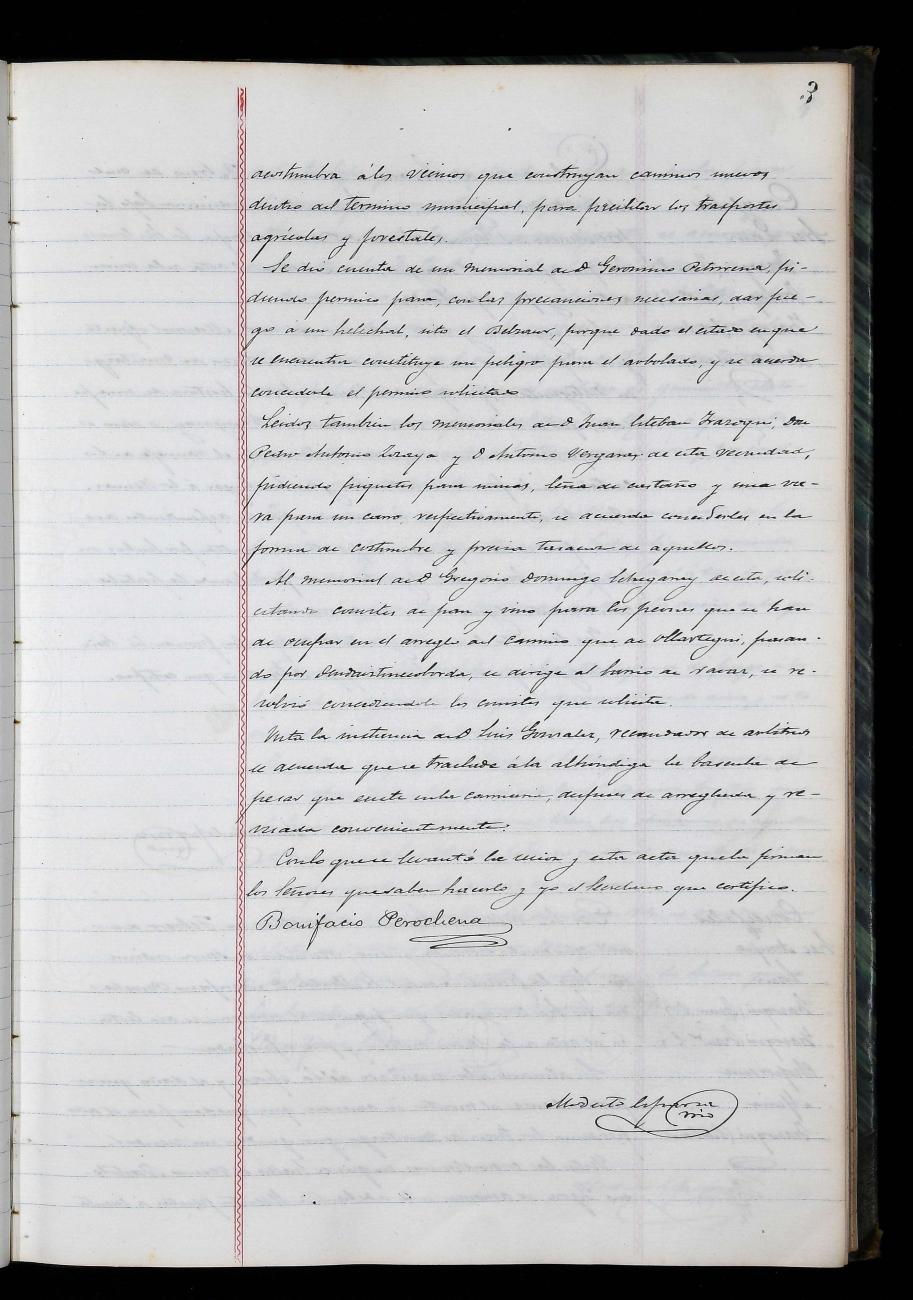 3
acostumbra á los vecinos que construyan caminos nuevos
dentro del termino municipal, para facilitar los trasportes
agrícolas y forestales.
Se dió cuenta de un memorial de D Geronimo Petrirena, pi-
diendo permiso para, con las precauciones necesarias, dar fue-
go á un helechal, sito el, porque dado el estado en que
se encuentra constituye un peligro para el arbolado, y se acuerda
concederle el permiso solicitado
Leidos tambien los memoriales de D Juan Esteban Irazoqui, Don
Pedro Antonio Zozaya y D Antonio Vergara, de esta vecindad,
pidiendo piquetes para minas, leña de castaño y una
va para un carro, respectivamente, se acuerda concederles en la
forma de costumbre y previa tasacion de aquellos.
Al memorial de D Gregorio Domingo Echegaray de esta, soli-
citando comites de pan y vino para los peones que se han
de ocupar en el arreglo del camino que de, pasan-
do por, se dirige al barrio de, se re-
solvió concediendole los comites que solicita.
Vista la instancia de D Luis Gonzalez, recaudador de arbitrios
se acuerda que se traslade á la alhóndiga la bascula de
pesar que existe en la carniceria, despues de arreglada y re-
visada convenientemente.
Con lo que se levantó la sesion y esta acta que la firman
los Señores que saben hacerlo y yo el Secretario que certifico.
Bonifacio Perochena
Modesto Esparza
Srio